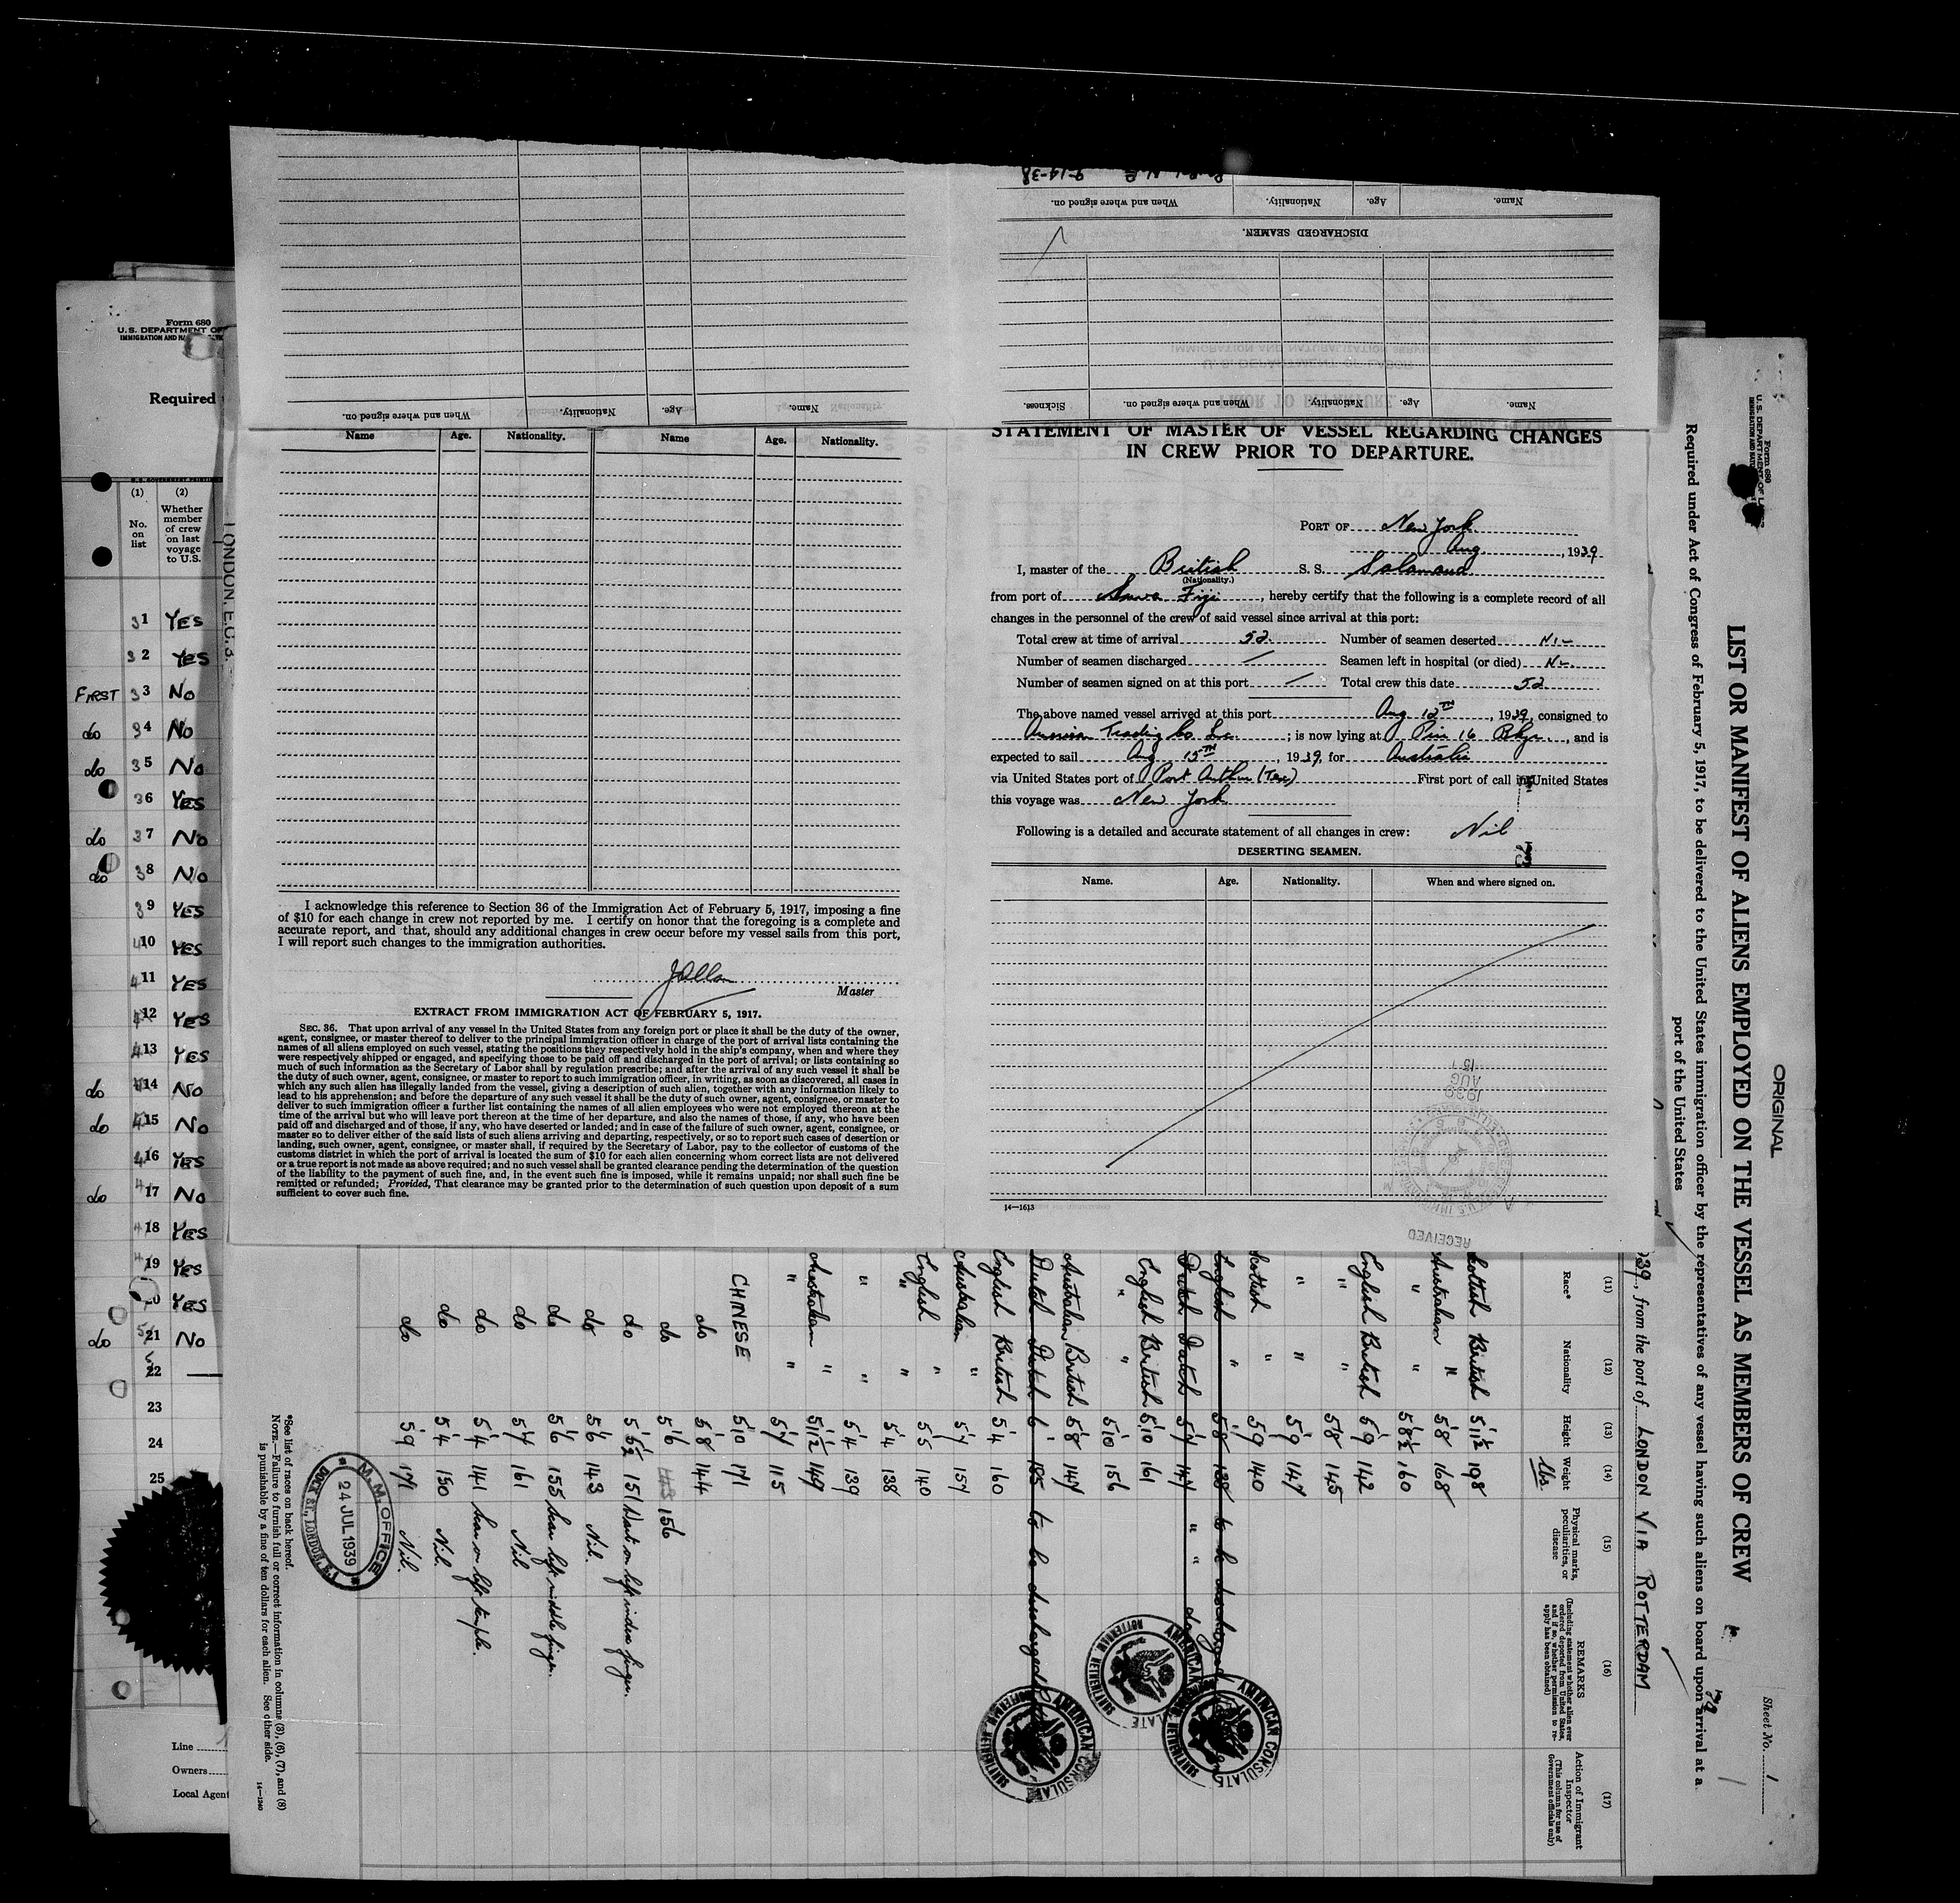 9-19-38
When and where signed on.
Nationality.
Age.
Name.
DISCHARGED SEAMEN.
When and where signed on.
Nationality.
Age.
Name.
Sickness.
When and where signed on.
Nationality.
Age.
Name.
Form 680
U.S. DEPARTMENT OF
IMMIGRATION AND
Required
(1) (2)
No. on list
Whether member of crew on last voyage to U.S.
31 YES
32 YES
FIRST 33 No
do 34 No
do 35 No
36 YES
do 37 No
do 38 No
39 YES
410 YES
411 YES
412 YES
413 YES
do 414 No
do 415 No
416 YES
do 417 No
418 YES
19 YES
20 YES
do 21 No
22 —
23
24
25
Line
Owners
Local Agent
LONDON. E.C.3.
Name Age. Nationality. Name Age. Nationality.
I acknowledge this reference to Section 36 of the Immigration Act of February 5, 1917, imposing a fine
of $10 for each change in crew not reported by me. I certify on honor that the foregoing is a complete and
accurate report, and that, should any additional changes in crew occur before my vessel sails from this port,
I will report such changes to the immigration authorities.
Master
EXTRACT FROM IMMIGRATION ACT OF FEBRUARY 5, 1917.
SEC. 36. That upon arrival of any vessel in the United States from any foreign port or place it shall be the duty of the owner,
agent, consignee, or master thereof to deliver to the principal immigration officer in charge of the port of arrival lists containing the
names of all aliens employed on such vessel, stating the positions they respectively hold in the ship's company, when and where they
were respectively shipped or engaged, and specifying those to be paid off and discharged in the port of arrival; or lists containing so
much of such information as the Secretary of Labor shall by regulation prescribe; and after the arrival of any such vessel it shall be
the duty of such owner, agent, consignee, or master to report to such immigration officer, in writing, as soon as discovered, all cases in
which any such alien has illegally landed from the vessel, giving a description of such alien, together with any information likely to
lead to his apprehension; and before the departure of any such vessel it shall be the duty of such owner, agent, consignee, or master to
deliver to such immigration officer a further list containing the names of all alien employees who were not employed thereon at the
time of the arrival but who will leave port thereon at the time of her departure, and also the names of those, if any, who have been
paid off and discharged and of those, if any, who have deserted or landed; and in case of the failure of such owner, agent, consignee, or
master so to deliver either of the said lists of such aliens arriving and departing, respectively, or so to report such cases of desertion or
landing, such owner, agent, consignee, or master shall, if required by the Secretary of Labor, pay to the collector of customs of the
customs district in which the port of arrival is located the sum of $10 for each alien concerning whom correct lists are not delivered
or a true report is not made as above required; and no such vessel shall be granted clearance pending the determination of the question
of the liability to the payment of such fine, and, in the event such fine is imposed, while it remains unpaid; nor shall such fine be
remitted or refunded; Provided, That clearance may be granted prior to the determination of such question upon deposit of a sum
sufficient to cover such fine.
STATEMENT OF MASTER OF VESSEL REGARDING CHANGES
IN CREW PRIOR TO DEPARTURE.
PORT OF New York
Aug. , 1939
I, master of the British S. S. Salamaua
(Nationality.)
from port of Suva Fiji , hereby certify that the following is a complete record of all
changes in the personnel of the crew of said vessel since arrival at this port:
Total crew at time of arrival 52 Number of seamen deserted Nil
Number of seamen discharged / Seamen left in hospital (or died) Nil
Number of seamen signed on at this port / Total crew this date 52
The above named vessel arrived at this port Aug 12TH , 1939, consigned to
American Trading Co. ; is now lying at Pier 16 Bklyn , and is
expected to sail Aug 15TH , 1939, for Australia
via United States port of Port Arthur (Tex) First port of call in United States
this voyage was New York
Following is a detailed and accurate statement of all changes in crew: Nil
DESERTING SEAMEN.
Name. Age. Nationality. When and where signed on.
14—1613
1939
AUG
15
RECEIVED
ORIGINAL
Sheet No. 1
Form 680
LIST OR MANIFEST OF ALIENS EMPLOYED ON THE VESSEL AS MEMBERS OF CREW
Required under Act of Congress of February 5, 1917, to be delivered to the United States immigration officer by the representatives of any vessel having such aliens on board upon arrival at a
port of the United States
39, from the port of LONDON VIA ROTTERDAM
(11) (12) (13) (14) (15) (16) (17)
Race* Nationality Height Weight lbs.
Physical marks, peculiarities, or disease
REMARKS
(Including statement whether alien ever ordered deported from United States, and if so, whether permission to reapply has been obtained)
Action of Immigrant Inspector
(This column for use of Government officials only)
Scottish British 5'11½ 198
Australian " 5'8 168
" " 5'8½ 160
English British 5'9 142
" " 5'8 145
" " 5'9 147
Scottish " 5'9 140
English " 5'8 138 to be discharged
Dutch Dutch 5'7 147 " " do
English British 5'10 161
" " 5'10 156
Australian British 5'8 147
Dutch Dutch 6' 185 to be discharged
English British 5'4 160
Australian " 5'7 157
English " 5'5 140
" " 5'4 138
" " 5'4 139
Australian " 5'11½ 149
" " 5'7 115
CHINESE 5'10 171
do 5'8 144
do 5'6 156
do 5'5½ 151 Wart on left index finger.
do 5'6 143 Nil.
do 5'6 155 Scar left middle finger.
do 5'7 161 Nil
do 5'4 141 Scar on left temple.
do 5'4 150 Nil
do 5'9 171 Nil.
AMERICAN CONSULATE
ROTTERDAM, NETHERLANDS
AMERICAN CONSULATE
ROTTERDAM, NETHERLANDS
AMERICAN CONSULATE
ROTTERDAM, NETHERLANDS
M.M. OFFICE
24 JUL 1939
DOCK ST., LONDON, E.1
*See list of races on back hereof.
NOTE.—Failure to furnish full or correct information in columns (3), (6), (7), and (8)
is punishable by a fine of ten dollars for each alien. See other side.
14—1240